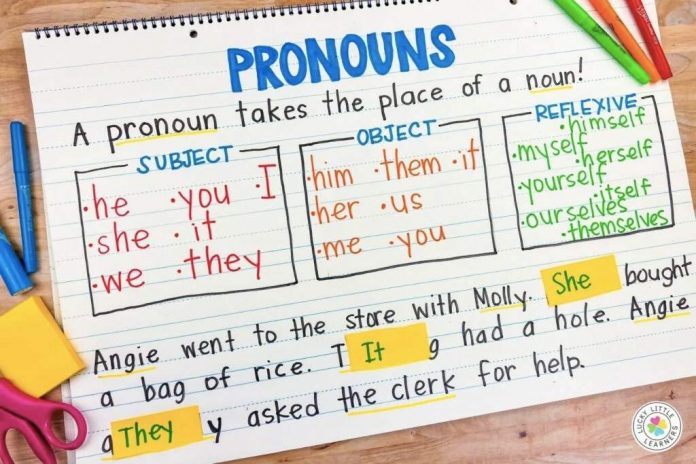 PRONOUNS
A pronoun takes the place of a noun!
SUBJECT
•he •you •I
•she •it
•we •they
OBJECT
•him •them •it
•her •us
•me •you
REFLEXIVE
•himself
•myself
•herself
•yourself
•itself
•ourselves
•themselves
Angie went to the store with Molly. She bought
a bag of rice. T It g had a hole. Angie
a They y asked the clerk for help.
LUCKY LITTLE LEARNERS